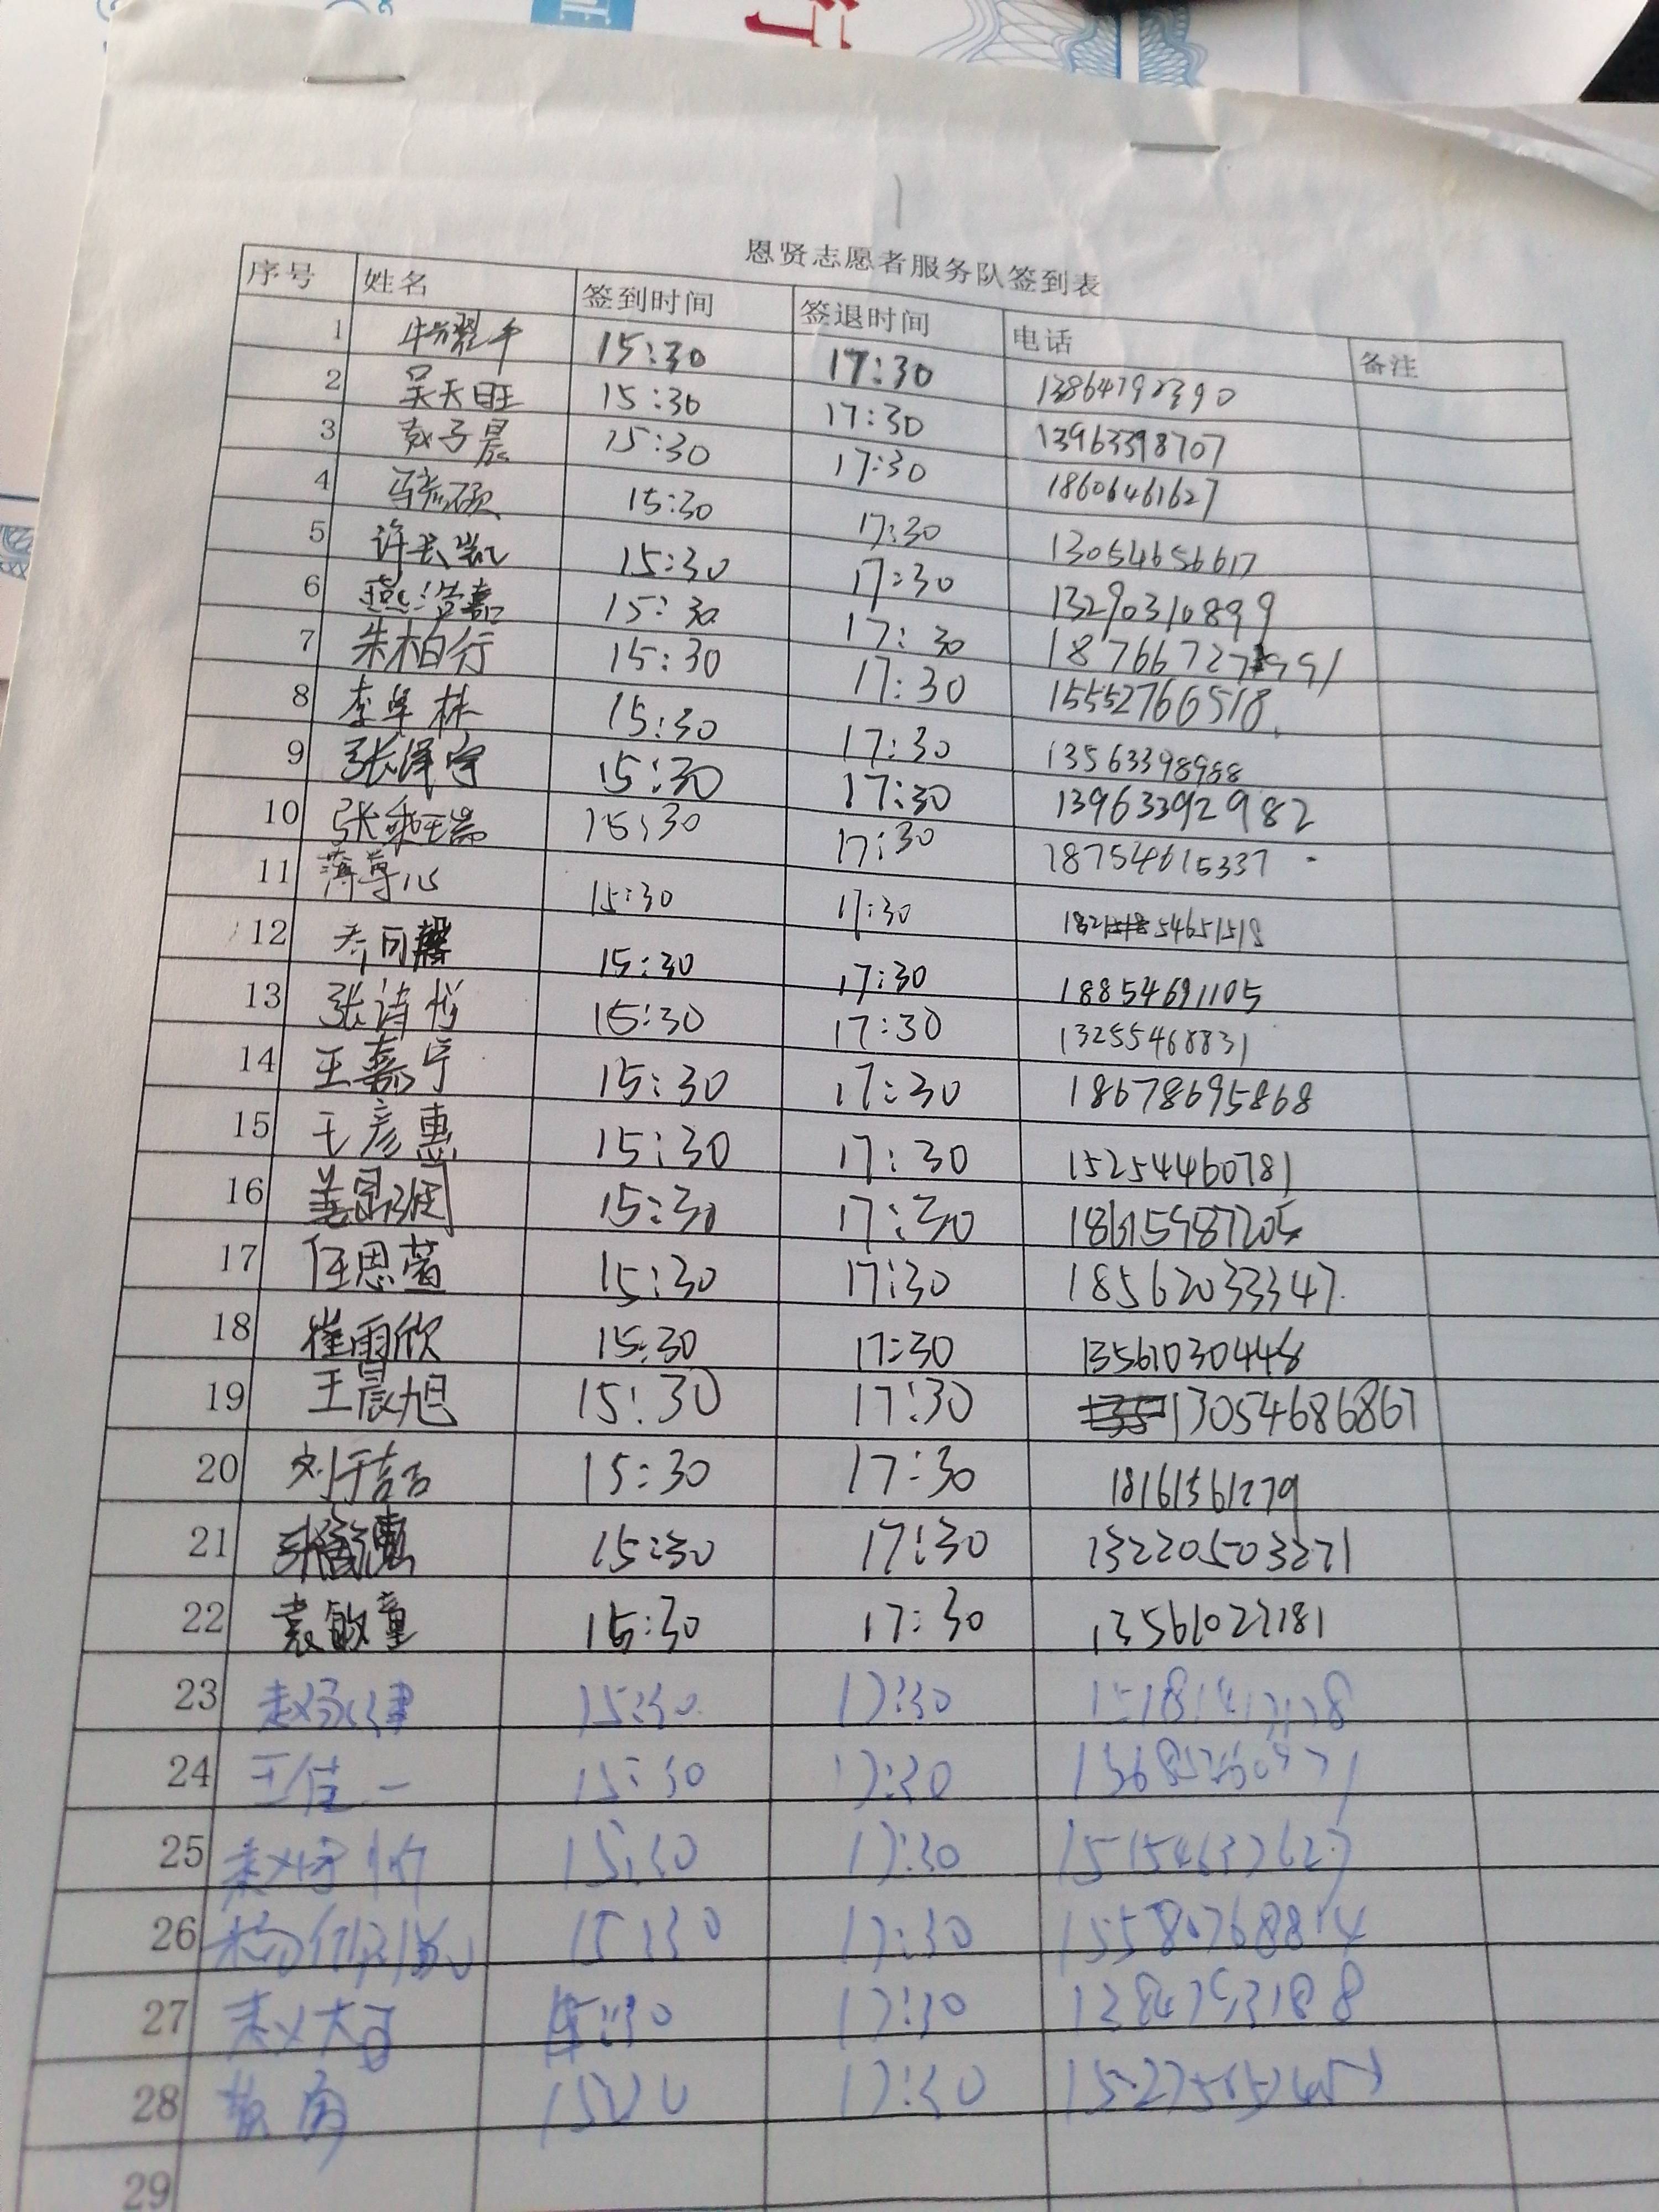 行
恩贤志愿者服务队签到表
序号 姓名 签到时间 签退时间 电话 备注
1 15:30 17:30
2 吴天旺 15:30 17:30 13963398707
3 赵子晨 15:30 17:30 18606461627
4 15:30 17:30 13054656617
5 许长凯 15:30 17:30 13290310899
6 燕浩嘉 15:30 17:30
7 朱柏行 15:30 17:30 15552766518
8 李卓林 15:30 17:30 13563398988
9 张泽宇 15:30 17:30 13963392982
10 张乘旺瑞 15:30 17:30 18754615337
11 薄尊心 15:30 17:30
12 15:30 17:30 18854691105
13 张诗悦 15:30 17:30 13255468831
14 王嘉宁 15:30 17:30 18678695868
15 王彦惠 15:30 17:30 15254460781
16 15:30 17:30 18615987205
17 任思萱 15:30 17:30 18562033347
18 崔雨欣 15:30 17:30 13561030448
19 王晨旭 15:30 17:30 13054686867
20 刘于喆 15:30 17:30 18161361279
21 15:30 17:30 13220503271
22 袁敏童 15:30 17:30 13561027181
23 15:30 17:30
24 王佳一 15:30 17:30
25 15:30 17:30 15154637627
26 15:30 17:30 15580768814
27 15:30 17:30
28 17:30
29